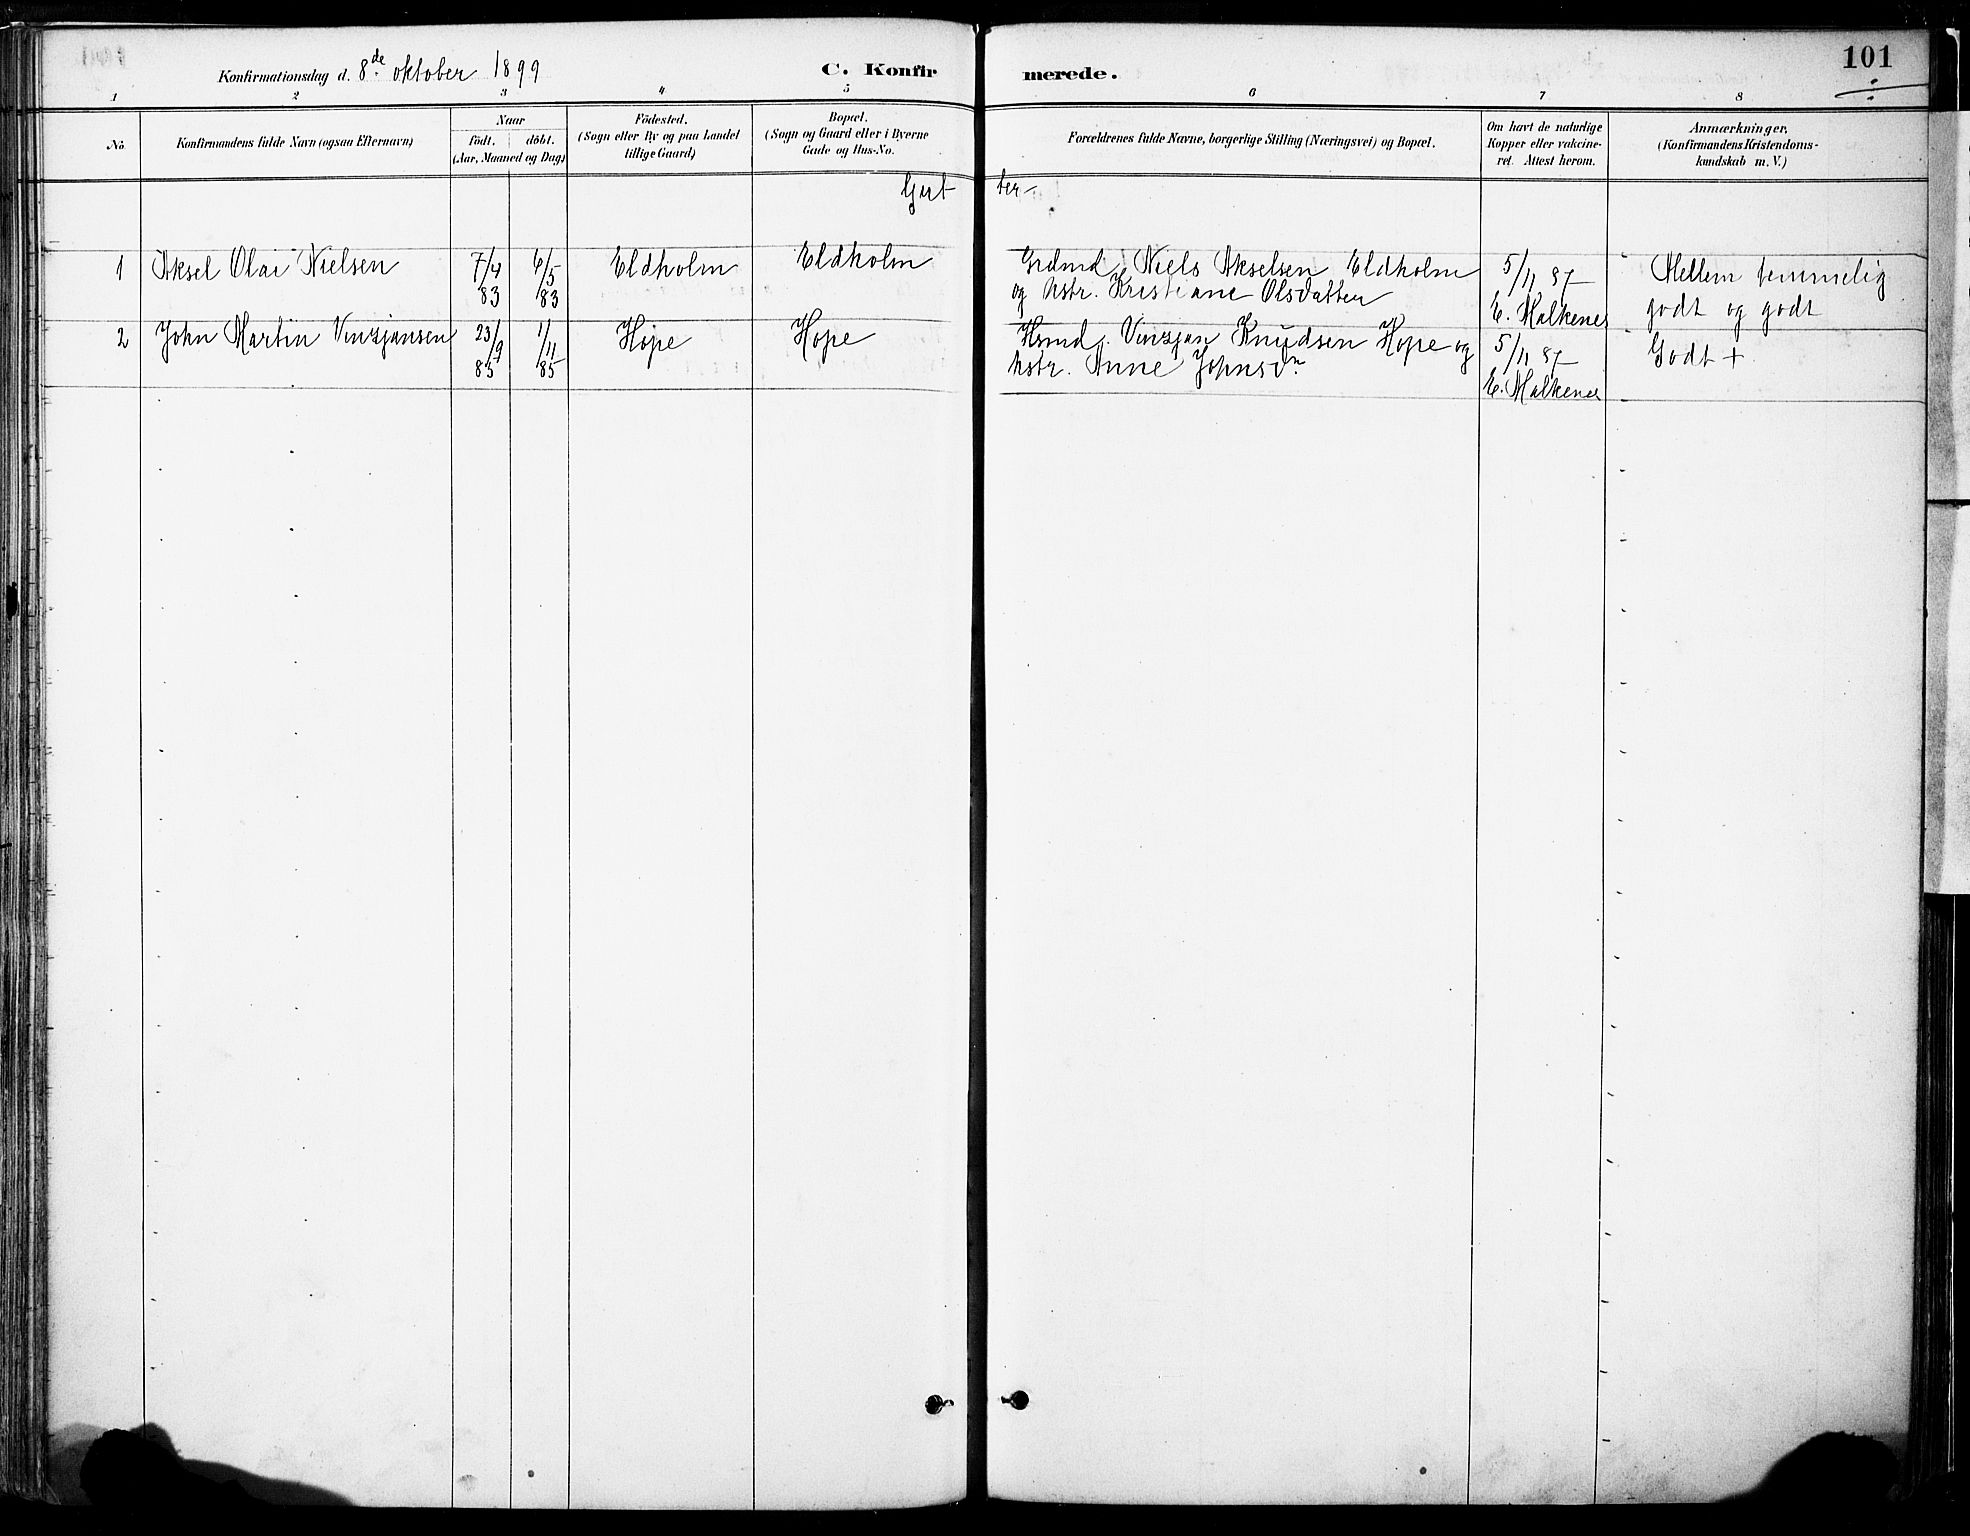 Konfirmationsdag d. 8de oktober 1899
C. Konfirmerede.
101
1 2 3 4 5 6 7 8
No.
Konfirmandens fulde Navn (ogsaa Efternavn)
Naar
født. døbt.
(Aar, Maaned og Dag)
Födested.
(Sogn eller By og paa Landet
tillige Gaard)
Bopæl.
(Sogn og Gaard eller i Byerne
Gade og Hus-No.
Forældrenes fulde Navne, borgerlige Stilling (Næringsvei) og Bopæl.
Om havt de naturlige
Kopper eller vakcine-
ret. Attest herom.
Anmærkninger.
(Konfirmandens Kristendoms-
kundskab m. V.)
Gut ter
1 Aksel Olai Nielsen 7/4 83 6/5 83 Eldholm Eldholm Grdmd. Niels Akselsen Eldholm
og hstr. Kristiane Olsdatter
5/11 87
E. Malkenes
Mellem temmelig
godt og godt
2 John Martin Vinsjansen 23/9 85 1/11 85 Hope Hope Hsmd. Vinsjan Knudsen Hope og
hstr. Anne Johnsdn
5/11 87
E. Malkenes
Godt +